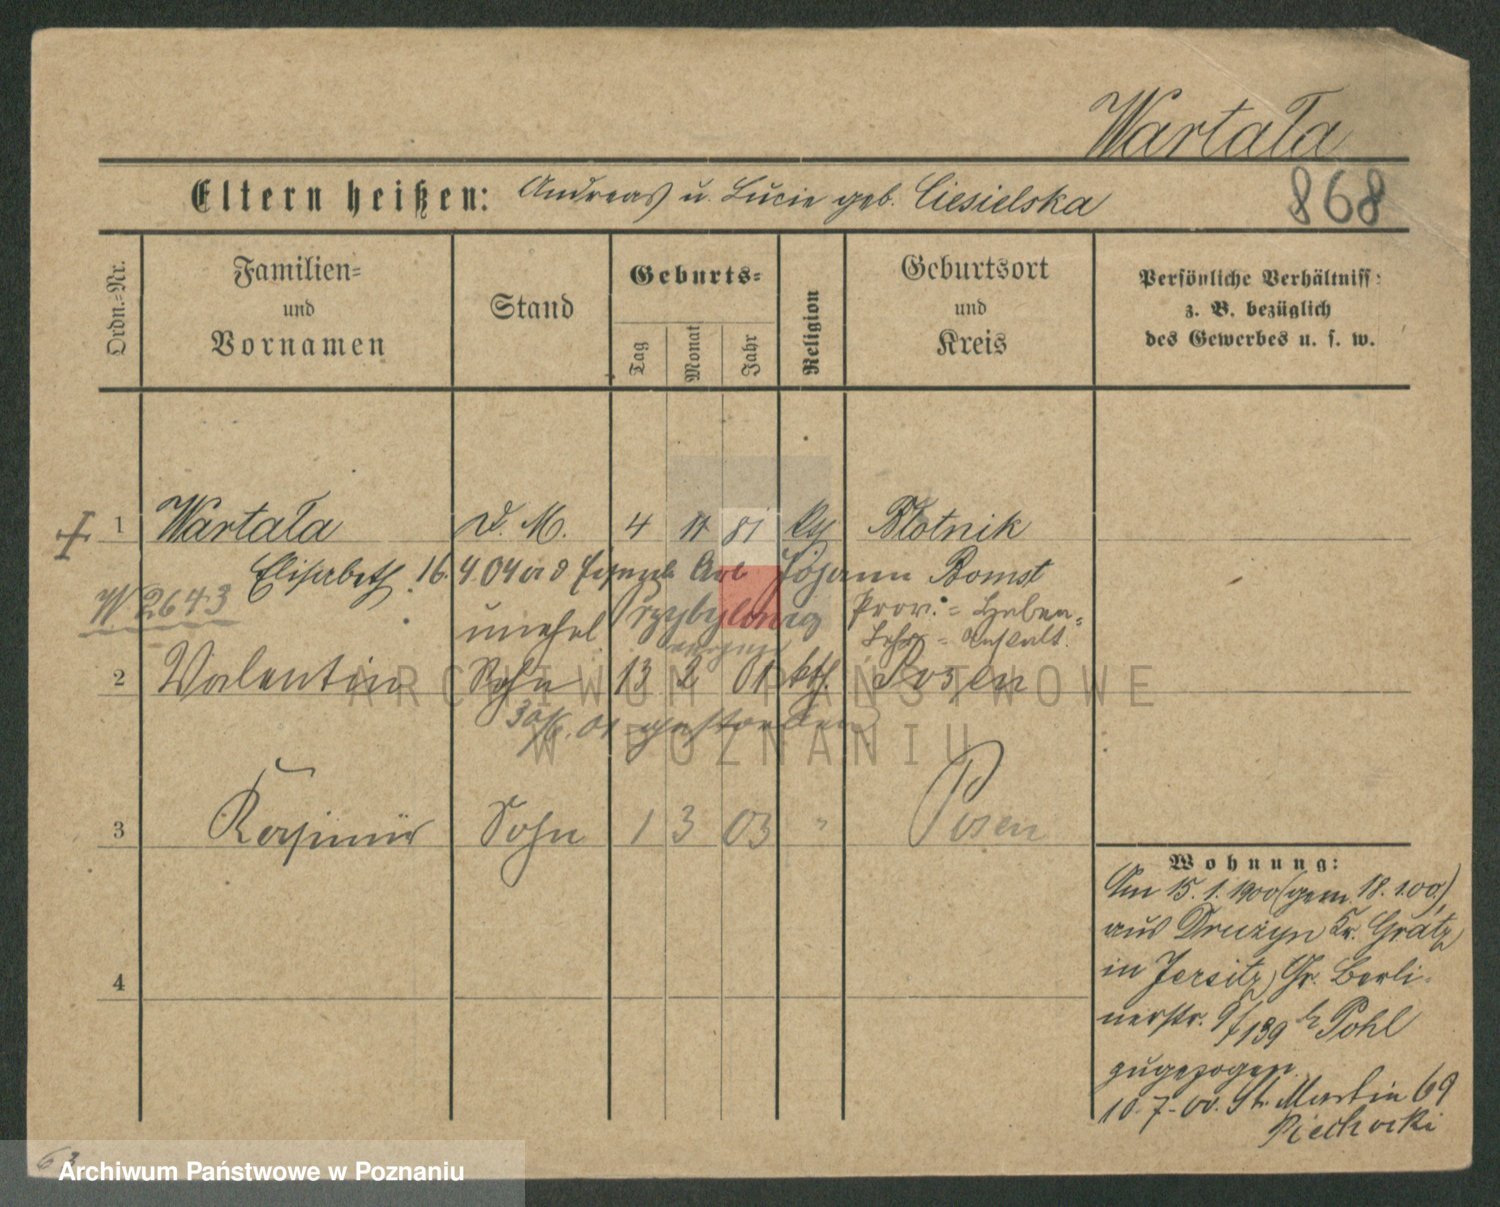 Wartała
Eltern heißen: Andreas u. Lucie geb. Ciesielska
868
Ordn.-Nr.
Familien-
und
Vornamen
Stand
Geburts-
Tag
Monat
Jahr
Religion
Geburtsort
und
Kreis
Persönliche Verhältniss:
z. B. bezüglich
des Gewerbes u. s. w.
1 Wartała D. M. 4 11 81 Blotnik
Elisabeth 16. 4.04 Johann Bomst
W 2643
unehel Przybylowicz Prov. = Heben-
2 Valentin Sohn 13 2 01 kth. Posen
30/6. 01 gestorben
3 Kasimir Sohn 1 3 03 " Posen
4
Wohnung:
Am 15. 1. 1900 (gem. 18. 1.00.),
aus Druzyn Kr. Grätz
in Jersitz, Gr. Berli-
nerstr. 139 b Pohl
zugezogen.
10. 7. 00. St. Martin 69
Piechocki
ARCHIWUM PAŃSTWOWE
W POZNANIU
63
Archiwum Państwowe w Poznaniu